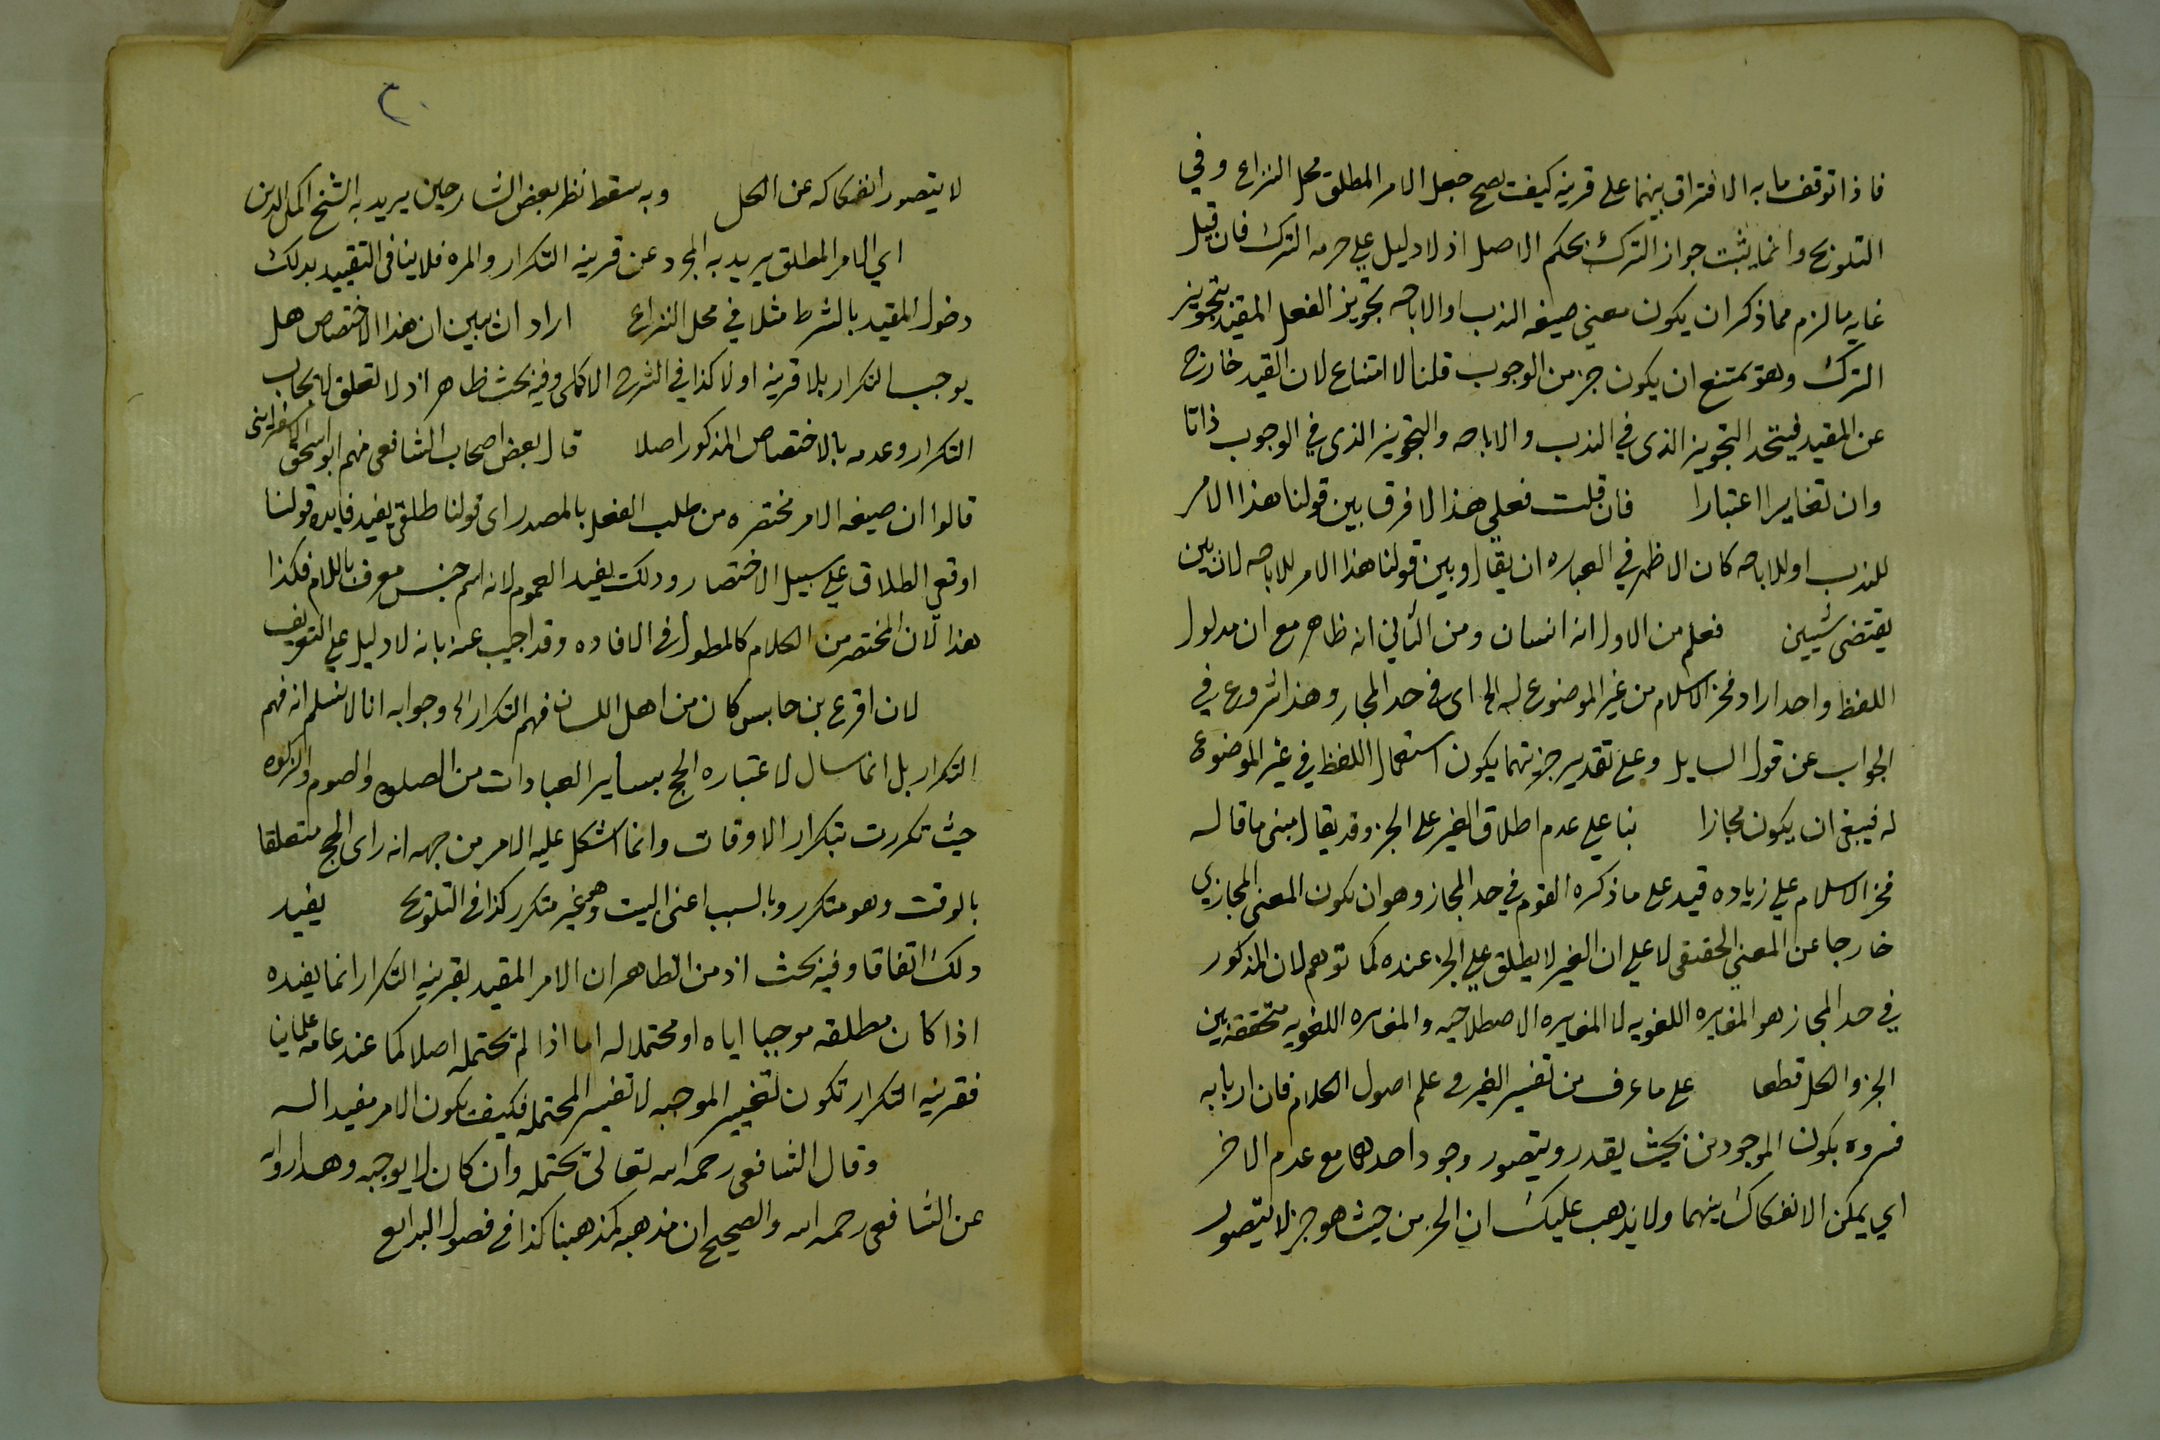 فاذا توقف ما به الافتراق بينهما على قرينه كيف يصح جعل الامر المطلق محل النزاع وفي
التلويح وانما يثبت جواز الترك بحكم الاصل اذ لا دليل على حرمه الترك فان قيل
غايه ما لزم مما ذكر ان يكون معنى صيغه الندب او الاباحه تجويز الفعل المقيد بتجويز
الترك وهو يمتنع ان يكون جزء من الوجوب قلنا لا امتناع لان القيد خارج
عن المقيد فيتحد التجويز الذي في الندب والاباحه والتجويز الذي في الوجوب ذاتا
وان تغايرا اعتبارا فان قلت فعلى هذا لا فرق بين قولنا هذا الامر
للندب او للاباحه كان الاظهر في العباره ان يقال وبين قولنا هذا الامر للاباحه لان بين
يقتضى شيئين فعلم من الاول انه انسان ومن الثاني انه ظاهر مع ان مدلول
اللفظ واحد اراد فخر الاسلام من غير الموضوع له الخ اى في حد المجاز وهذا شروع في
الجواب عن قول السايل وعلى تقدير جزئيتهما يكون استعمال اللفظ في غير الموضوع
له فينبغي ان يكون مجازا بنا على عدم اطلاق الغير على الجزء وقد يقال مبنى ما قاله
فخر الاسلام على زياده قيد على ما ذكره القوم في حد المجاز وهو ان يكون المعنى المجازي
خارجا عن المعنى الحقيقي لا على ان الغير لا يطلق على الجزء عنده كما توهم لان المذكور
في حد المجاز هو المغايره اللغويه لا المغايره الاصطلاحيه والمغايره اللغويه متحققه بين
الجزء والكل قطعا على ما عرف من تفسير الغير في علم اصول الكلام فان اربابه
فسروه بكون الموجودين بحيث يقدر ويتصور وجود احدهما مع عدم الاخر
اي يمكن الانفكاك بينهما ولا يذهب عليك ان الجزء من حيث هو جزء لا يتصور
لا يتصور انفكاكه عن الكل وبه سقط نظر بعض الشارحين يريد به الشيخ اكمل الدين
اي الامر المطلق يريد به المجرد عن قرينه التكرار والمره فلا ينافى التقييد بذلك
دخول المقيد بالشرط مثلا في محل النزاع اراد ان يبين ان هذا الاختصاص هل
يوجب التكرار بلا قرينه اولا كذا في الشرح الاكملي وفيه بحث ظاهر اذ لا تعلق لايجاب
التكرار وعدمه بالاختصاص المذكور اصلا قال بعض اصحاب الشافعى منهم ابو اسحق الاسفراينى
قالوا ان صيغه الامر مختصره من طلب الفعل بالمصدر اى قولنا طلقى يفيد فايده قولنا
اوقعي الطلاق على سبيل الاختصار وذلك يفيد العموم لانه اسم جنس معرف باللام فكذا
هذا لان المختصر من الكلام كالمطول في الافاده وقد اجيب عنه بانه لا دليل على التعريف
لان اقرع بن حابس كان من اهل اللسان فهم التكرار الخ وجوابه انا لا نسلم انه فهم
التكرار بل انما سال لاعتباره الحج بساير العبادات من الصلوه والصوم والزكوه
حيث تكررت بتكرار الاوقات وانما اشكل عليه الامر من جهه انه راى الحج متعلقا
بالوقت وهو متكرر وبالسبب اعنى البيت وهو غير متكرر كذا في التلويح يفيد
ذلك اتفاقا وفيه بحث اذ من الظاهر ان الامر المقيد بقرينه التكرار انما يفيده
اذا كان مطلقه موجبا اياه او محتملا له اما اذا لم يحتمله اصلا كما عند عامه علماينا
فقرينه التكرار تكون لتغيير الموجبه لا تفسير المحتمله فكيف يكون الامر مفيدا له
وقال الشافعى رحمه الله تعالى يحتمله وان كان لا يوجبه وهذا روايه
عن الشافعى رحمه الله والصحيح ان مذهبه كمذهبنا كذا في فصول البدايع